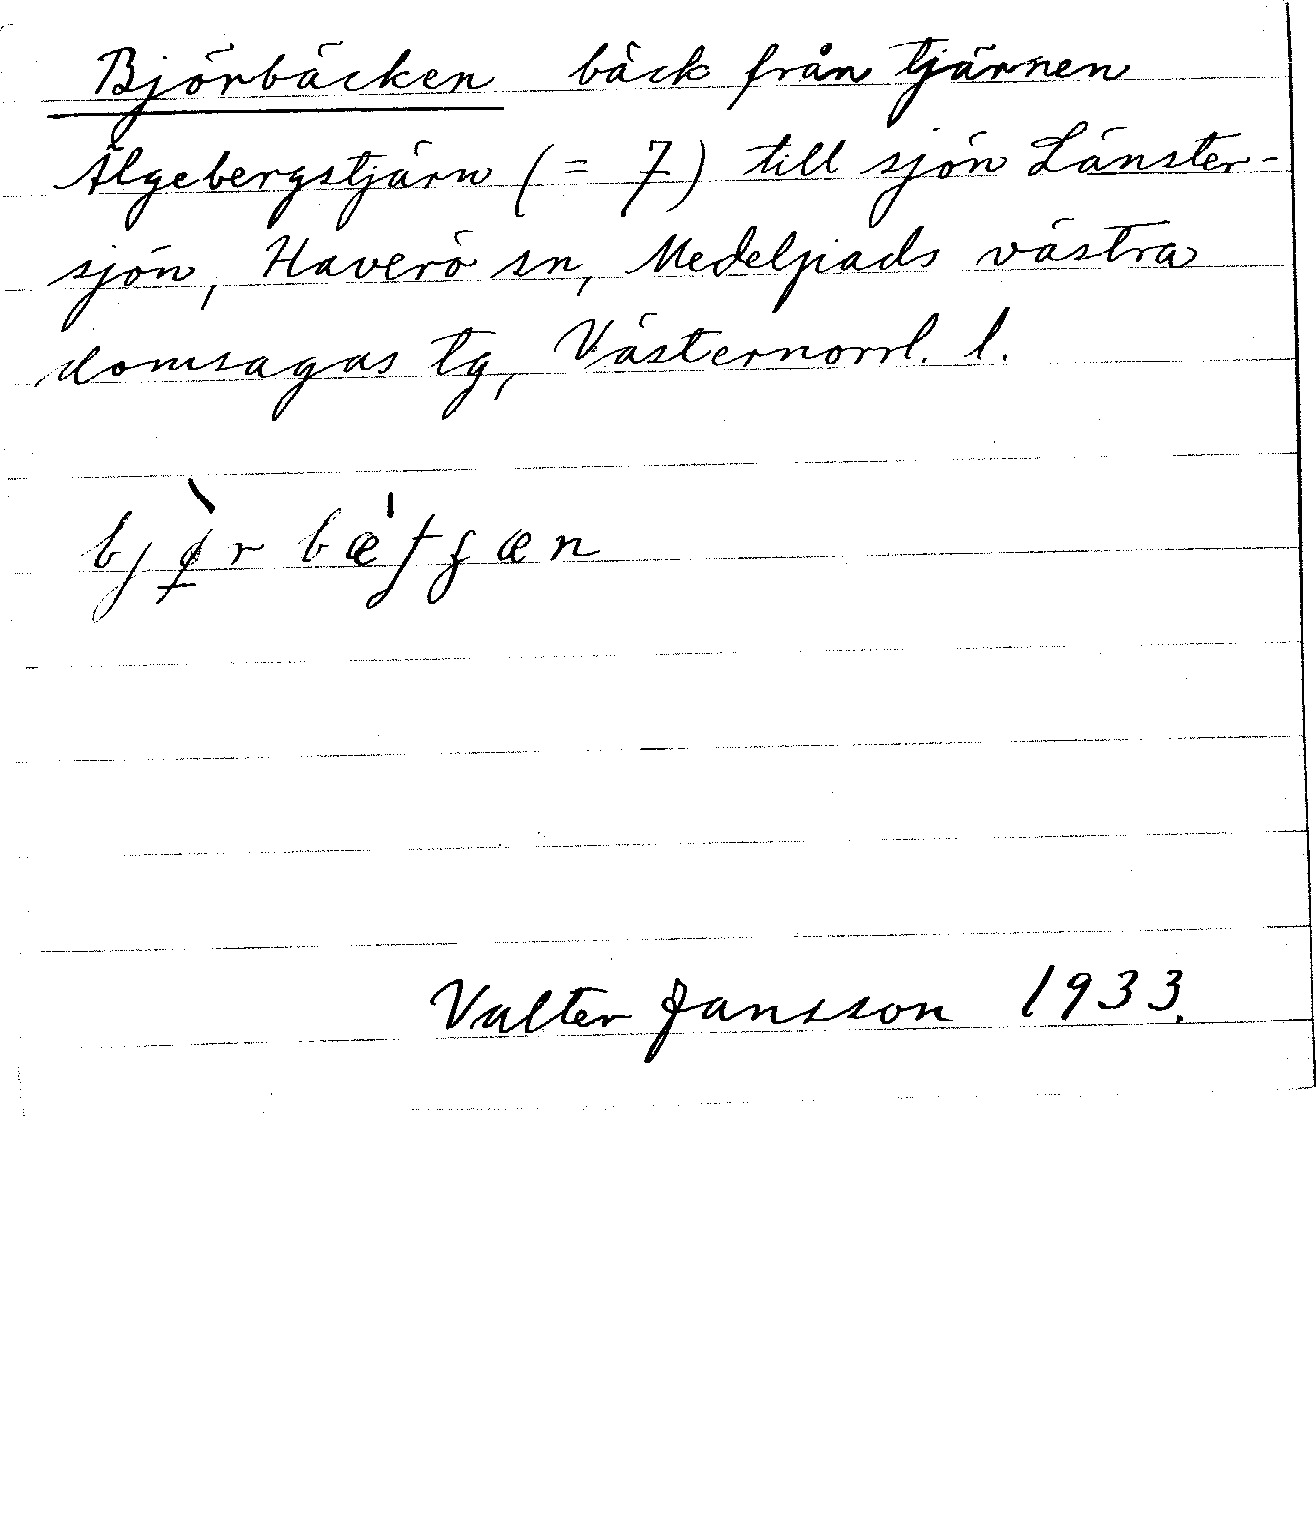 Björbäcken bäck från tjärnen
Älgebergstjärn (= 7) till sjön Länster-
sjön, Haverö sn, Medelpads västra
domsagas tg, Västernorrl. l.
Valter Jansson 1933.